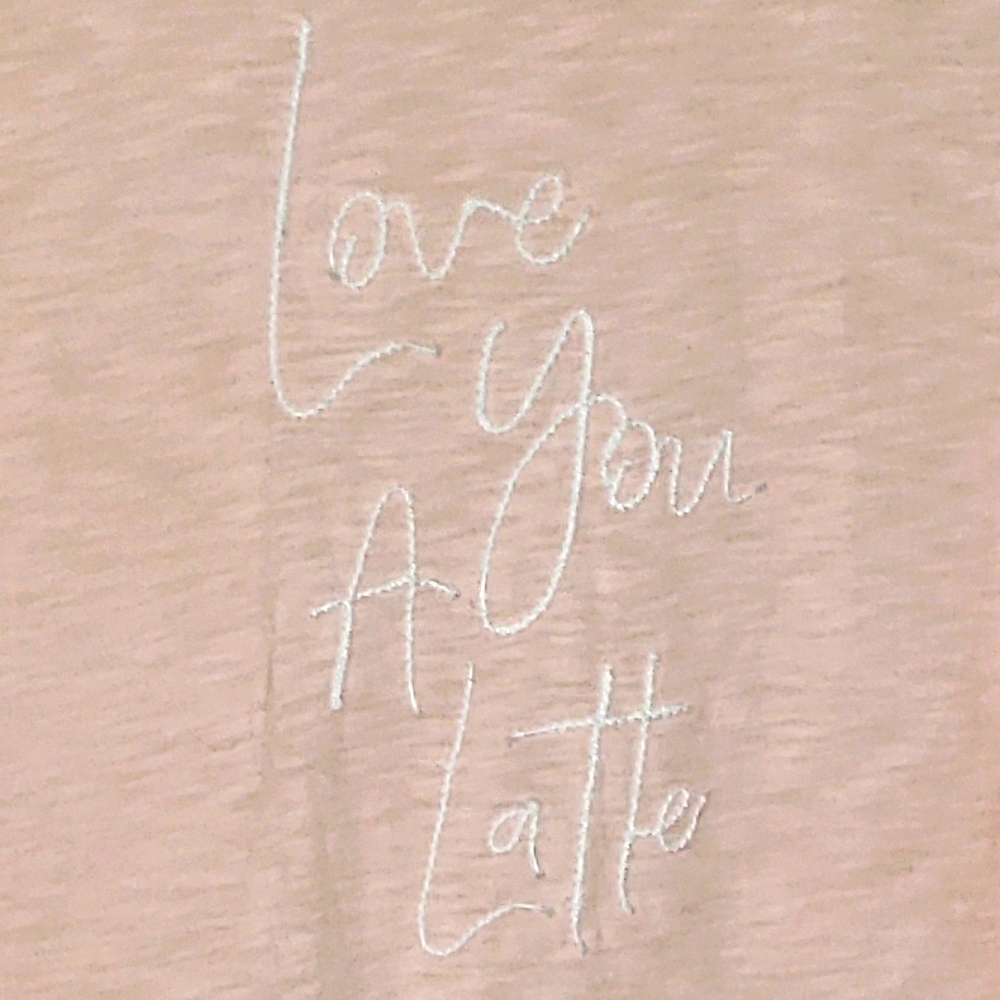 Love
You
A
Latte